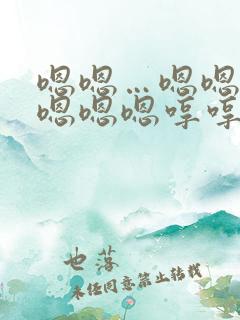 嗯嗯…嗯嗯
嗯嗯嗯哼哼
也落
未经同意禁止转载